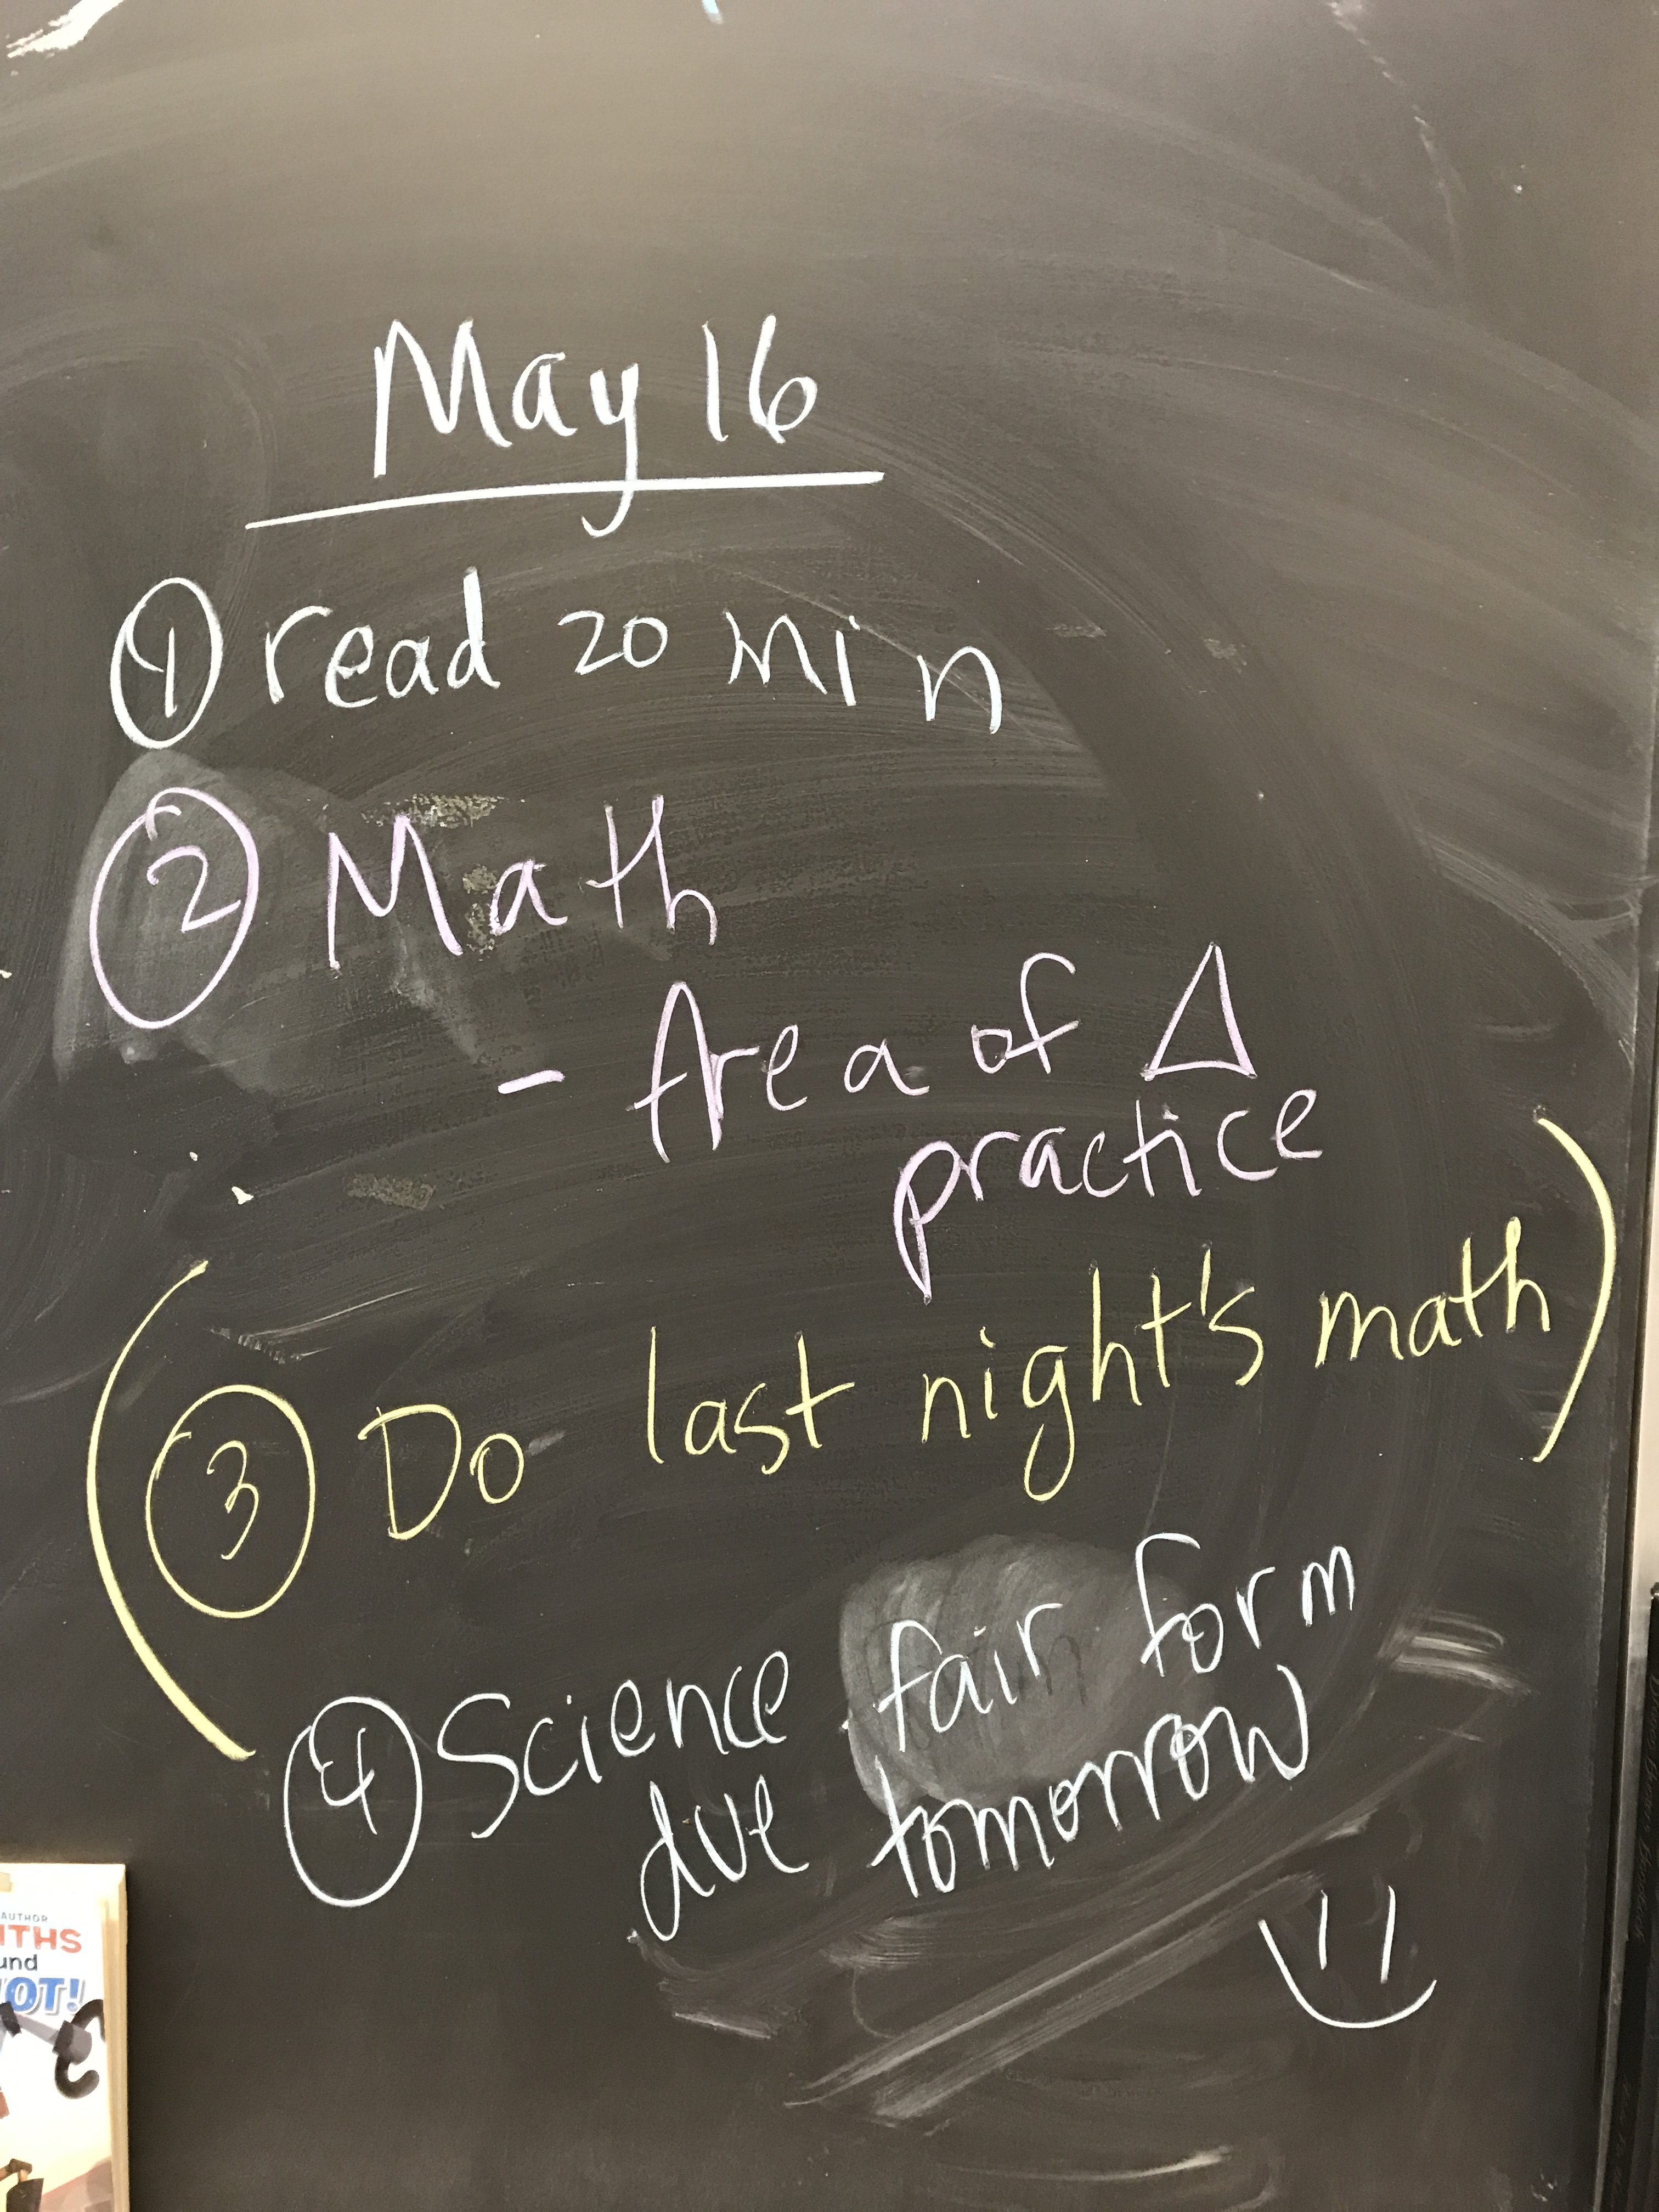 May 16
① read 20 min
② Math
- Area of Δ
practice
(③ Do last night's math)
④ Science fair form
due tomorrow
AUTHOR